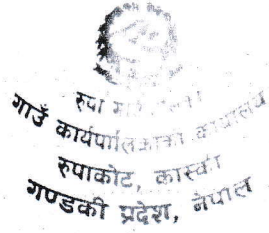 रुपा गाउँपालिका
गाउँ कार्यपालिकाको कार्यालय
रुपाकोट, कास्की
गण्डकी प्रदेश, नेपाल